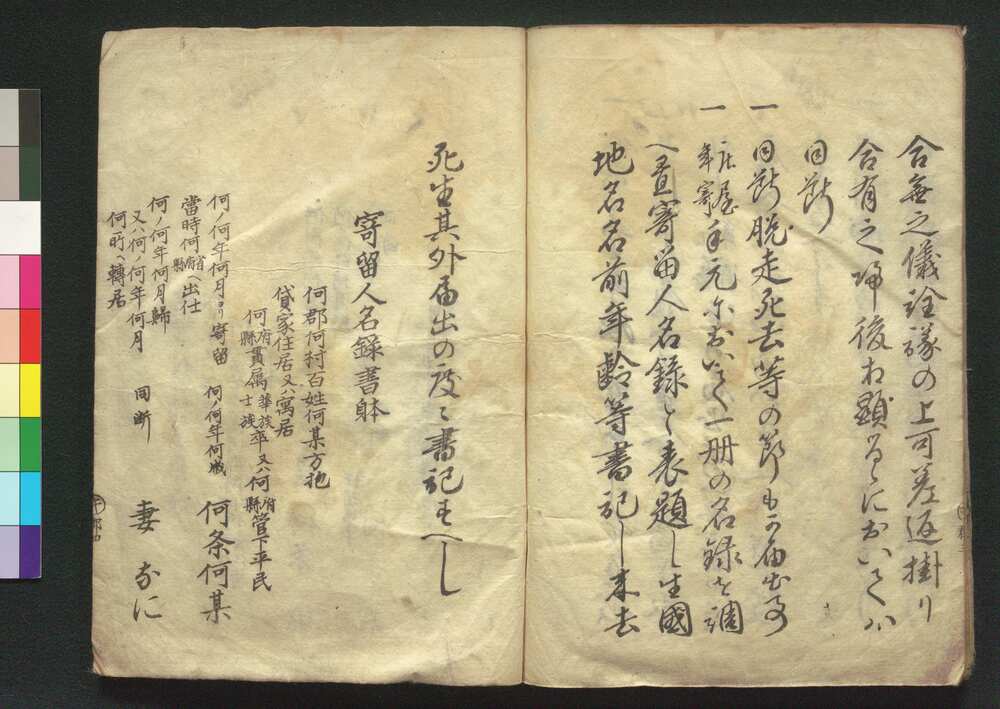 合無之儀詮議の上可差返掛り
合有之帰後相顕るゝにおいてハ
同断
一 同断脱走死去等の節も可届出事
一 庄屋年寄手元尓おいて一册の名録を調
へ置寄留人名録と表題し生國
地名名前年齢等書記し来去
死生其外届出の度々書記すへし
寄留人名録書躰
何郡何村百姓何某方抱
貸家住居又ハ寓居
何府縣貫属華族士族卒又ハ何府縣管下平民
何ノ何年何月ヨリ寄留 何ノ何年何歳 何条何某
當時何省府縣ヘ出仕
何ノ何年何月歸
又ハ何ノ何年何月 同断 妻 なに
何町ヘ轉居